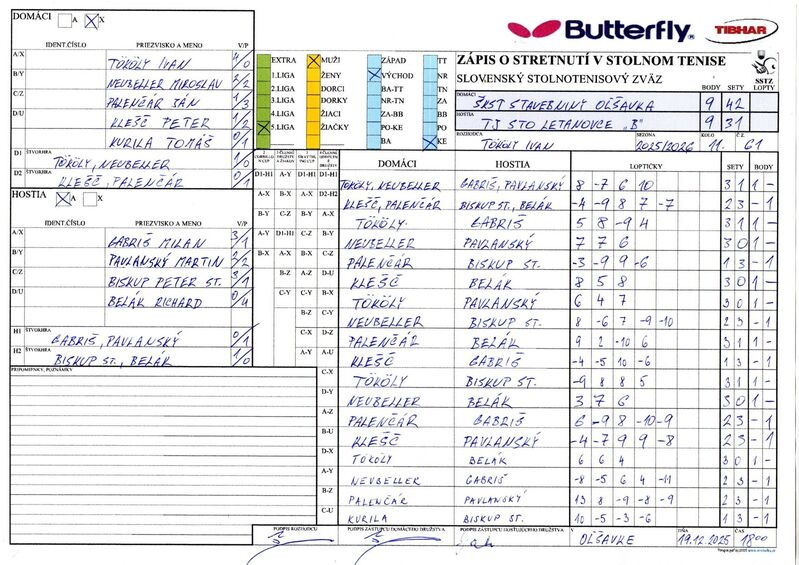 DOMÁCI A X
Butterfly
TIBHAR
IDENT.ČÍSLO PRIEZVISKO A MENO V/P
A/X TÖKÖLY IVAN 4/0
B/Y NEUBELLER MIROSLAV 2/2
C/Z PALENČÁR JÁN 1/3
D/U KLEŠČ PETER 1/2
KURILA TOMÁŠ 0/1
D1 ŠTVORHRA TÖKÖLY, NEUBELLER 1/0
D2 ŠTVORHRA KLEŠČ, PALENČÁR 0/1
HOSTIA X X
IDENT.ČÍSLO PRIEZVISKO A MENO V/P
A/X GABRIŠ MILAN 3/1
B/Y PAVLANSKÝ MARTIN 2/2
C/Z BISKUP PETER ST. 3/1
D/U BELÁK RICHARD 0/4
H1 ŠTVORHRA GABRIŠ, PAVLANSKÝ 0/1
H2 ŠTVORHRA BISKUP ST., BELÁK 1/0
PRIPOMIENKY, POZNÁMKY
EXTRA X MUŽI ZÁPAD TT
1.LIGA ŽENY X VÝCHOD NR
2.LIGA DORCI BA-TT TN
3.LIGA DORKY NR-TN ZA
4.LIGA ŽIACI ZA-BB BB
X 5.LIGA ŽIAČKY PO-KE PO
BA X KE
ZÁPIS O STRETNUTÍ V STOLNOM TENISE
SLOVENSKÝ STOLNOTENISOVÝ ZVÄZ
SSTZ
BODY SETY LOPTY
DOMÁCI ŠKST STAVEBNINY OLŠAVKA 9 42
HOSTIA TJ STO LETANOVCE „B" 9 31
ROZHODCA TÖKÖLY IVAN SEZONA 2025/2026 KOLO 11. Č.Z. 61
DOMÁCI HOSTIA LOPTIČKY SETY BODY
D1-H1 A-Y D1-H1 D1-H1 TÖKÖLY, NEUBELLER GABRIŠ, PAVLANSKÝ 8 -7 6 10 3 1 1 -
A-X B-X A-X D2-H2 KLEŠČ, PALENČÁR BISKUP ST., BELÁK -4 -9 8 7 -7 2 3 - 1
B-Y C-Z B-Y A-X TÖKÖLY GABRIŠ 5 8 -9 4 3 1 1 -
A-Y D1-H1 C-Z B-Y NEUBELLER PAVLANSKÝ 7 7 6 3 0 1 -
B-X A-X B-X C-Z PALENČÁR BISKUP ST. -3 -9 9 -6 1 3 - 1
B-Z A-Z D-U KLEŠČ BELÁK 8 5 8 3 0 1 -
C-Y C-Y A-Y TÖKÖLY PAVLANSKÝ 6 4 7 3 0 1 -
B-Z B-Z NEUBELLER BISKUP ST. 8 -6 7 -9 -10 2 3 - 1
C-X D-Z PALENČÁR BELÁK 9 2 -10 6 3 1 1 -
A-Y A-U KLEŠČ GABRIŠ -4 -5 10 -6 1 3 - 1
C-X TÖKÖLY BISKUP ST. -9 8 8 5 3 1 1 -
D-Y NEUBELLER BELÁK 3 7 6 3 0 1 -
A-Z PALENČÁR GABRIŠ 6 -9 8 -10 -9 2 3 - 1
B-U KLEŠČ PAVLANSKÝ -4 -7 9 9 -8 2 3 - 1
D-X TÖKÖLY BELÁK 6 6 4 3 0 1 -
A-Y NEUBELLER GABRIŠ -8 -5 6 4 -11 2 3 - 1
B-Z PALENČÁR PAVLANSKÝ 13 8 -9 -8 -9 2 3 - 1
C-U KURILA BISKUP ST. 10 -5 -3 -6 1 3 - 1
PODPIS ROZHODCU PODPIS ZÁSTUPCU DOMÁCEHO DRUŽSTVA PODPIS ZÁSTUPCU HOSŤUJÚCEHO DRUŽSTVA V OLŠAVKE DŇA 19.12.2025 ČAS 18:00